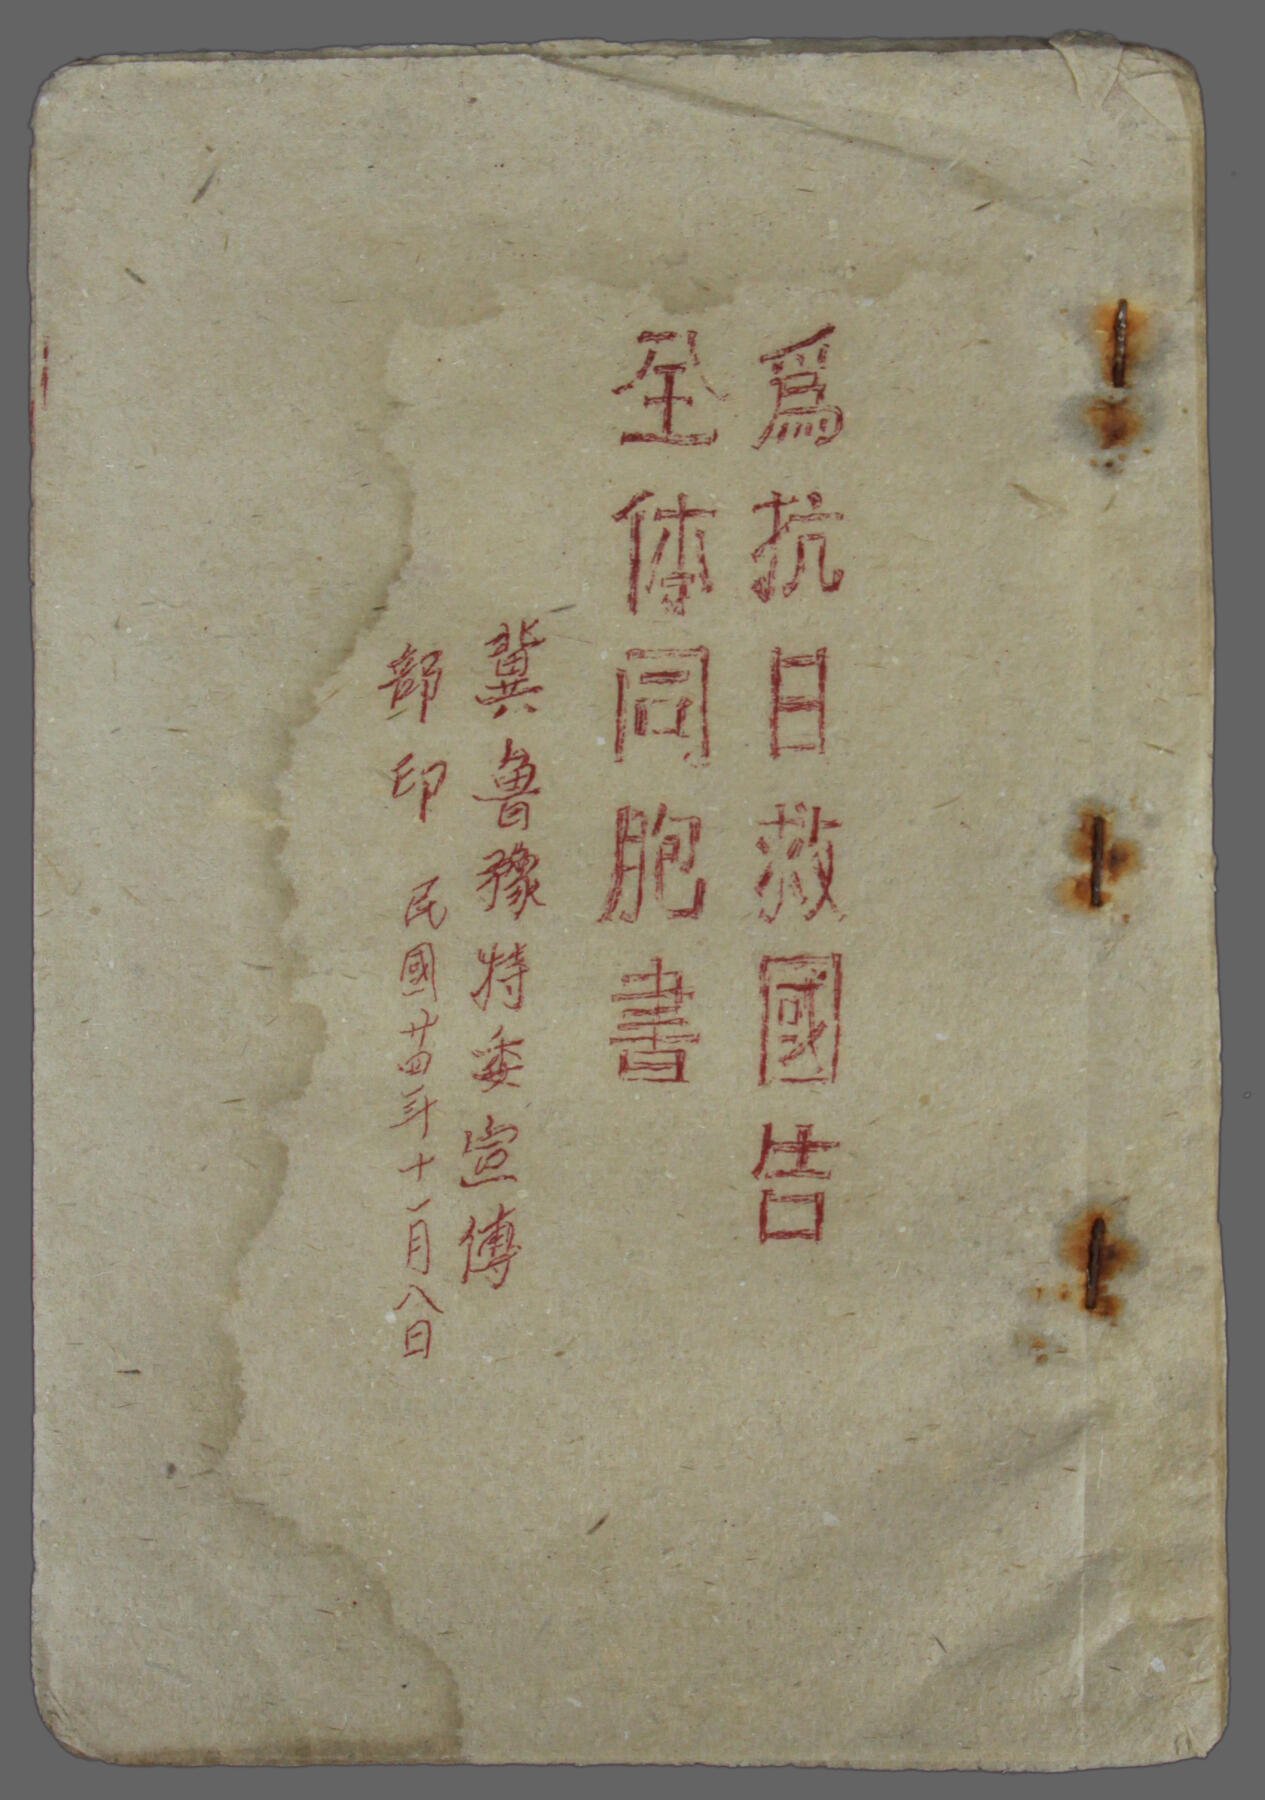 爲抗日救國告
全体同胞書
冀魯豫特委宣傳
部印 民國廿四年十一月八日